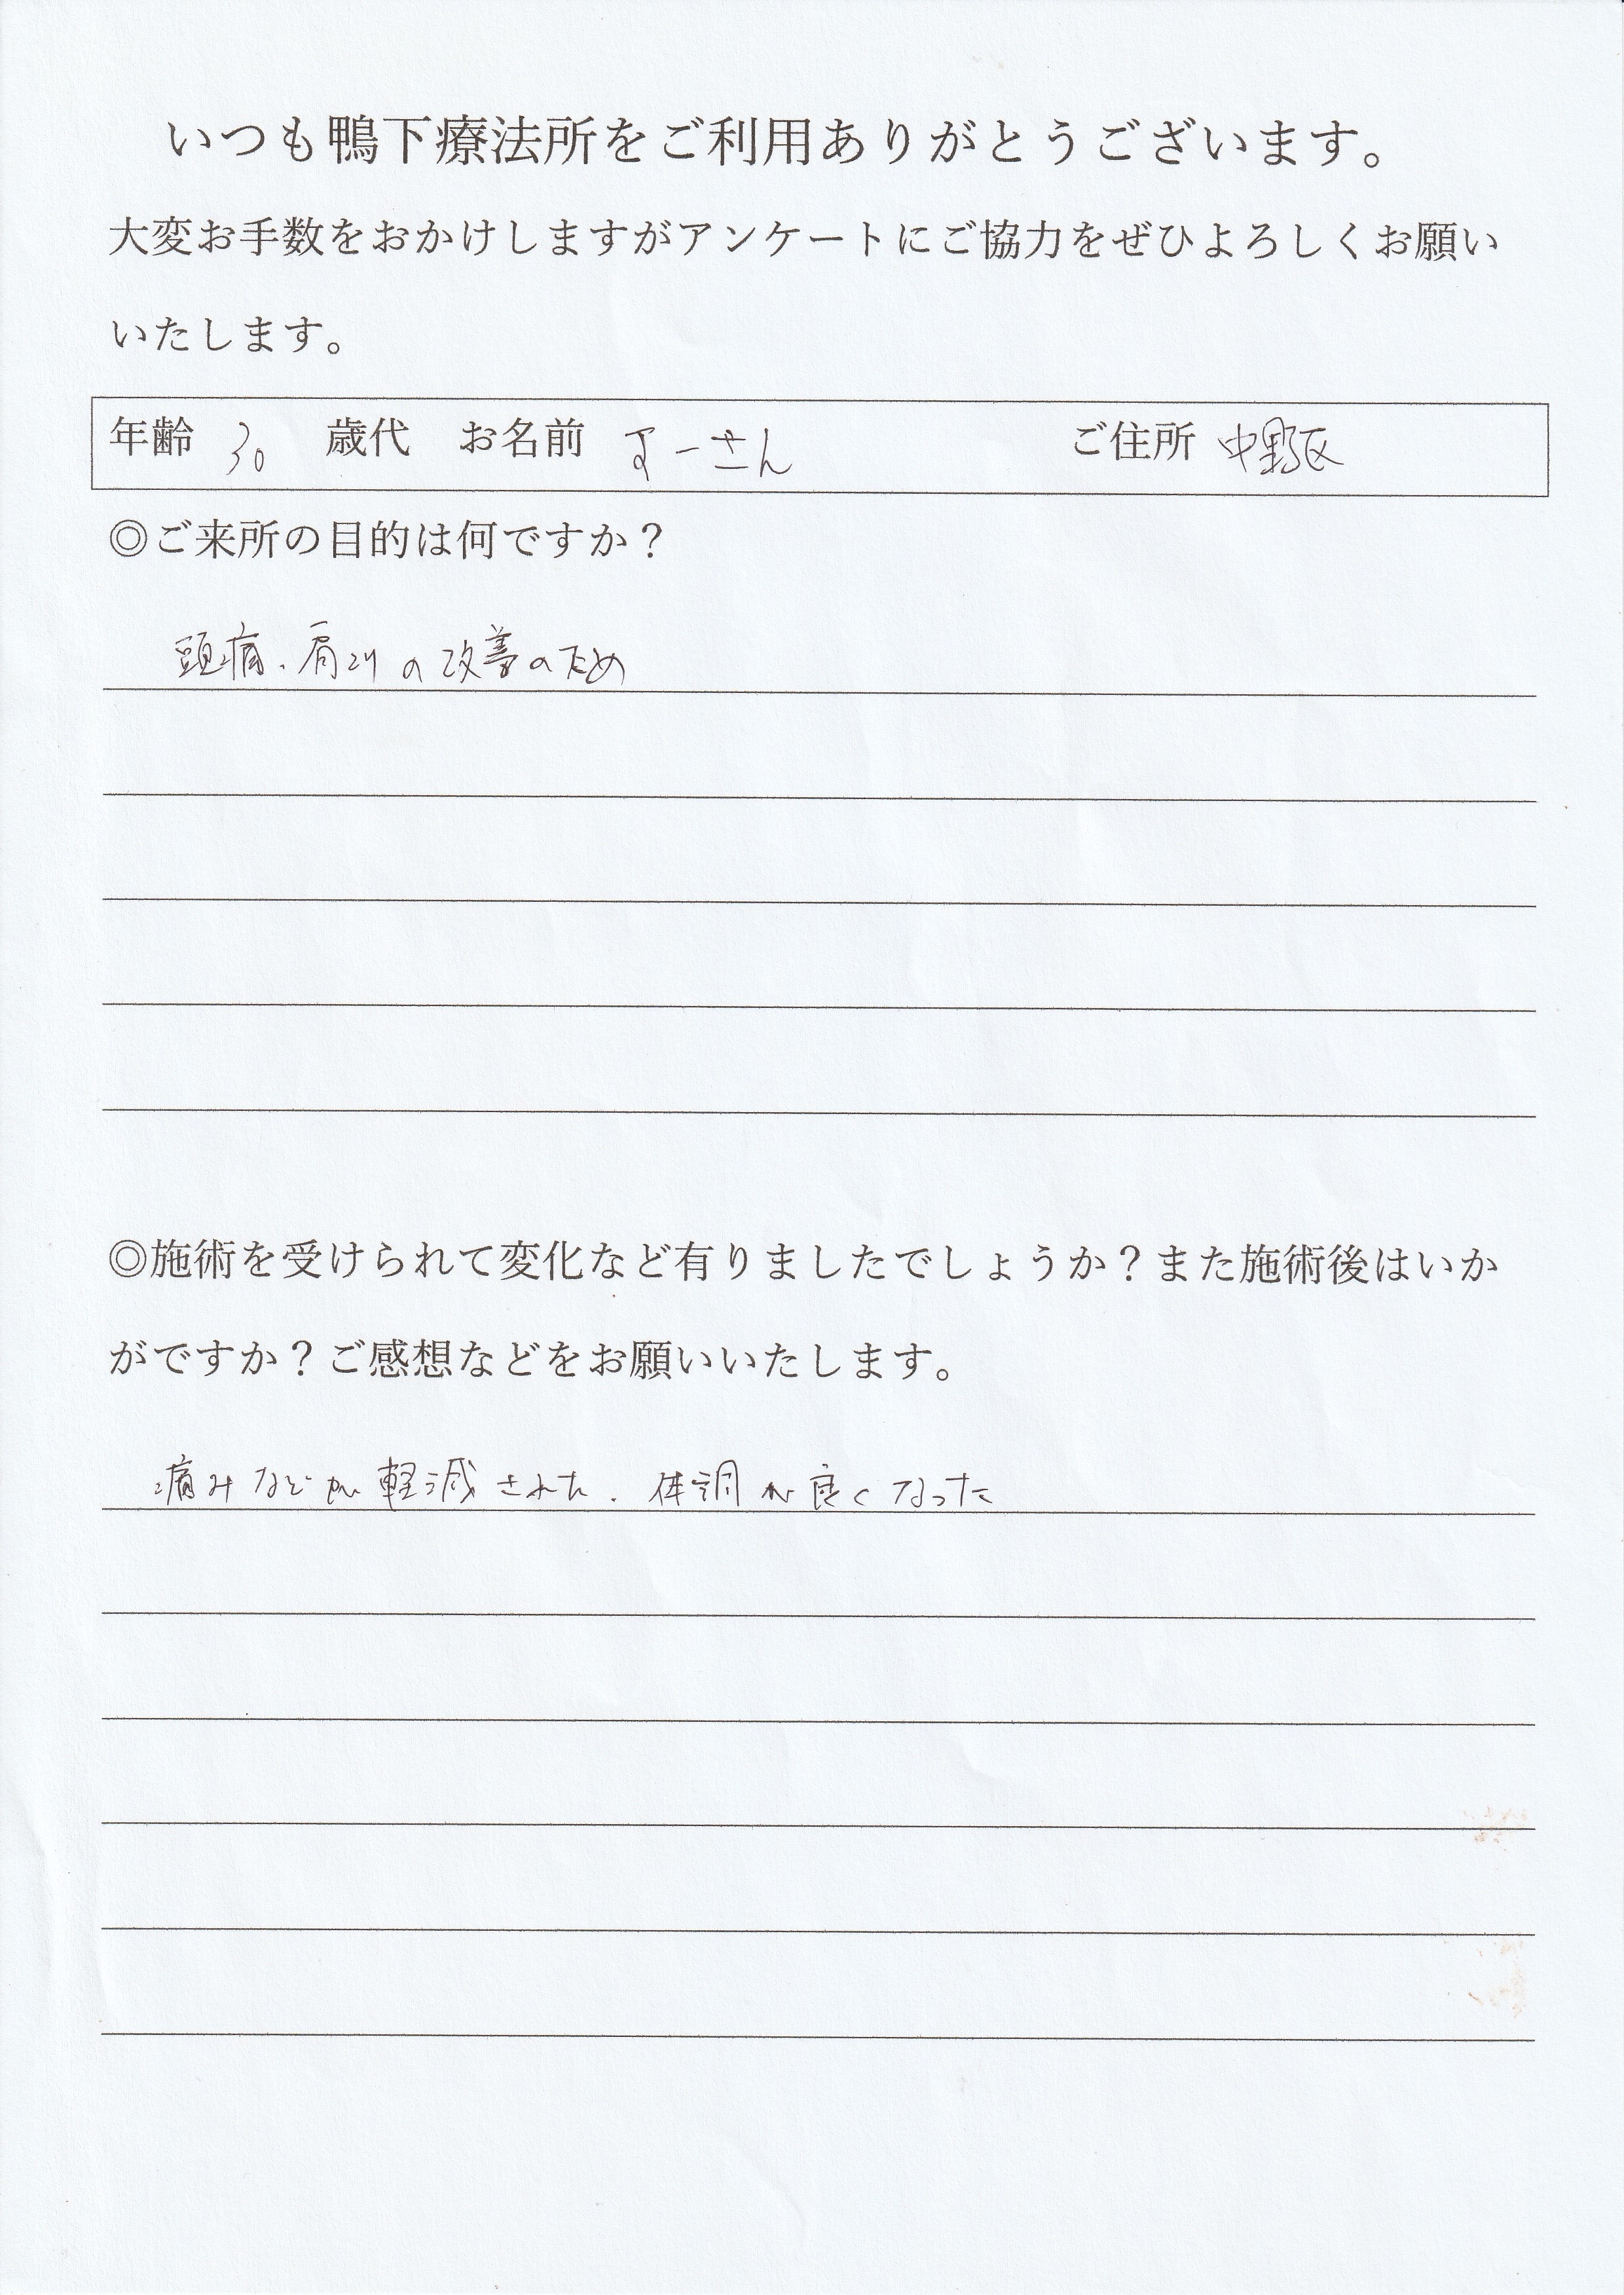 いつも鴨下療法所をご利用ありがとうございます。
大変お手数をおかけしますがアンケートにご協力をぜひよろしくお願い
いたします。
年齢 30 歳代 お名前 すーさん ご住所 中野区
◎ご来所の目的は何ですか？
頭痛、肩こりの改善のため
◎施術を受けられて変化など有りましたでしょうか？また施術後はいか
がですか？ご感想などをお願いいたします。
痛みなどが軽減された、体調が良くなった